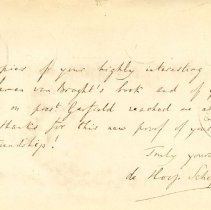 pies of your highly interesting
van Braght's book end of y
on prest Garfield reached us a
thanks for this new proof of you
endship!
Truly your
de Hoop Sche